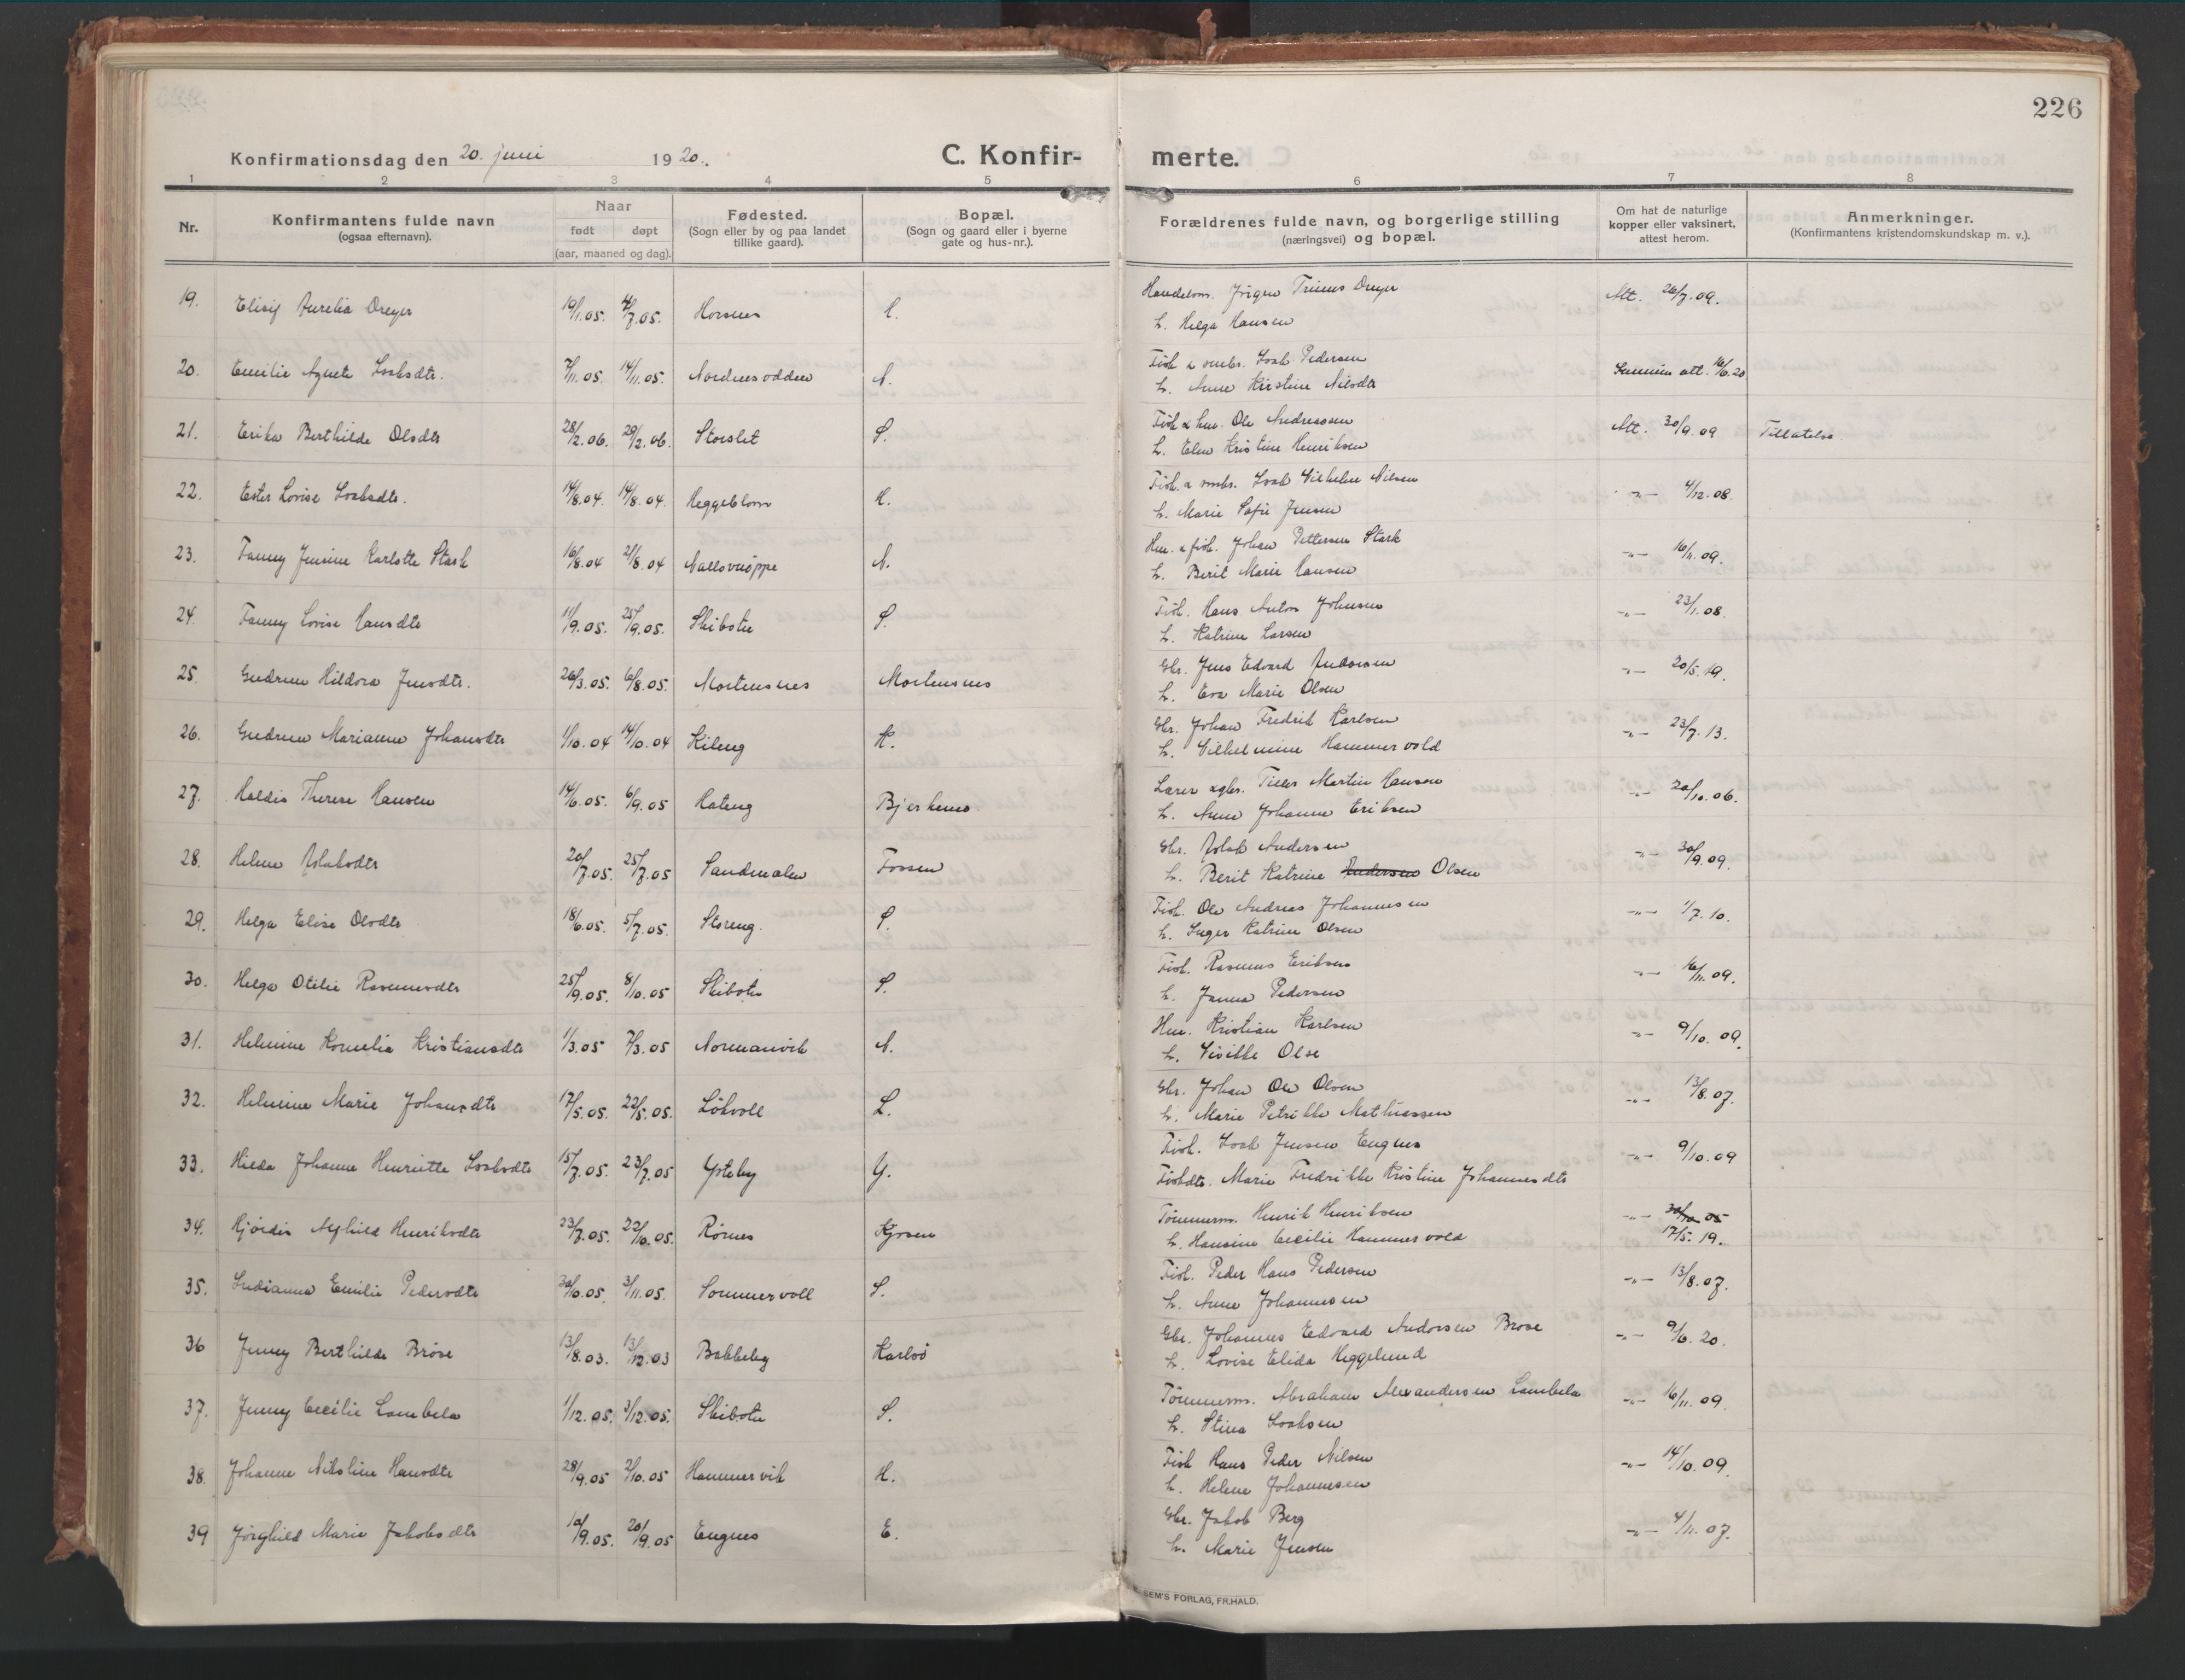 226
Konfirmationsdag den 20. juni 1920.
C. Konfir- merte.
1 2 3 4 5 6 7 8
Nr.
Konfirmantens fulde navn
(ogsaa efternavn).
Naar
født døpt
(aar, maaned og dag).
Fødested.
(Sogn eller by og paa landet
tillike gaard).
Bopæl.
(Sogn og gaard eller i byerne
gate og hus-nr.).
Forældrenes fulde navn, og borgerlige stilling
(næringsvei) og bopæl.
Om hat de naturlige
kopper eller vaksinert,
attest herom.
Anmerkninger.
(Konfirmantens kristendomskundskap m. v.).
19. Elisif Aurelia Dreyer 19/1.05. 4/7.05. Horsnes H. Handelsm. Jørgen Dreyer Att. 26/7.09.
h. Helga Hansen
20. Emilie Agnete Isaksdtr. 7/11.05. 14/11.05. Nordnesodden N. Fisk. & smbr. Isak Pedersen att. 16/6.20
h. Anne Kirstine Nilsdtr
21. Erika Berthilde Olsdtr 28/2.06. 29/2.06. Storslet S. Fisk. & hm. Ole Andreassen Att. 30/9.09 Tillatelse.
h. Elen Kristine Henriksen
22. Ester Lovise Isaksdtr. 14/8.04. 14/8.04. Heggeblom H. Fisk. & smbr. Isak Vilhelm Nilsen -"- 4/12.08.
h. Marie Sofie Jensen
23. Fanny Jensine Karlotte Stark 16/8.04 21/8.04 N. Hm. & fisk. Johan Pettersen Stark -"- 16/11.09.
h. Berit Marie Hansen
24. Fanny Lovise Hansdtr 11/9.05. 25/9.05. Skibotn S. Fisk. Hans Anton Johnsen -"- 23/1.08.
h. Katrine Larsen
25. Gudrun Hildora Jensdtr. 26/3.05. 6/8.05. Mortensnes Mortensnes Gbr. Jens Edvard Andersen -"- 20/5.19.
h. Eva Marie Olsen
26. Gudrun Marianne Johansdtr 1/10.04 14/10.04 Kileng K. Gbr. Johan Fredrik Karlsen -"- 23/7.13.
h. Vilhelmine Hammervold
27. Haldis Therese Hansen 14/6.05. 6/9.05 Hateng Bjerknes. Lærer & gbr. Martin Hansen -"- 20/10.06.
h. Anne Johanne Eriksen
28. Helene Aslaksdtr 20/7.05. 25/7.05 Sandmalen Fossen Gbr. Aslak Andersen -"- 30/9.09.
h. Berit Katrine Andersen Olsen
29. Helga Elise Olsdtr 18/6.05. 5/7.05. Storeng. S. Fisk. Ole Andreas Johannesen -"- 1/7.10.
h. Inger Katrine Olsen
30. Helga Otelie Rasmusdtr 25/9.05. 8/10.05 Skibotn S. Fisk. Rasmus Eriksen -"- 16/11.09.
h. Janna Pedersen
31. Helmine Kornelia Kristiansdtr 1/3.05 7/3.05 Normanvik N. Hm. Kristian Karlsen -"- 9/10.09.
h. Sisikke Olse
32. Helmine Marie Johansdtr 17/5.05. 22/5.05. Løkvoll L. Gbr. Johan Ole Olsen -"- 13/8.07.
h. Marie Petrikke Mathiassen
33. Hilda Johanne Henriette Isaksdtr 15/7.05. 23/7.05 Ysteby Y. Fisk. Isak Jensen Engnes -"- 9/10.09
Fiskdtr. Marie Fredrikke Kristine Johannesdtr
34. Hjørdis Asghild Henriksdtr 23/7.05. 22/10.05. Rørnes Kjosen Tømmerm. Henrik Henriksen -"- 30/10 05
h. Hansine Cecilie Hammervold 17/5.19.
35. Indianna Emilie Pedersdtr 30/6.05. 3/11.05. Sommervoll S. Fisk. Peder Hans Pedersen -"- 13/8.07.
h. Anne Johannesen
36 Jenny Berthilde Brose 13/8.03. 13/12.03 Bakkeby Karlsø Gbr. Johannes Edvard Andersen Brose -"- 9/6.20.
h. Lovise Elida Heggelund
37. Jenny Cecilie Lambela 1/12.05. 3/12.05. Skibotn S. Tømmerm. Abraham Alexandersen Lambela -"- 16/11.09.
h. Stina Isaksen
38. Johanne Nikoline Hansdtr 28/9.05 2/10.05 Hammervik H. Fisk Hans Peder Nilsen -"- 14/10.09.
h. Helene Johannesen
39 Jørghild Marie Jakobsdtr 10/9.05. 20/9.05 Engnes E. Gbr. Jakob Berg -"- 4/11.07.
h. Marie Jensen
SEM'S FORLAG, FR.HALD.